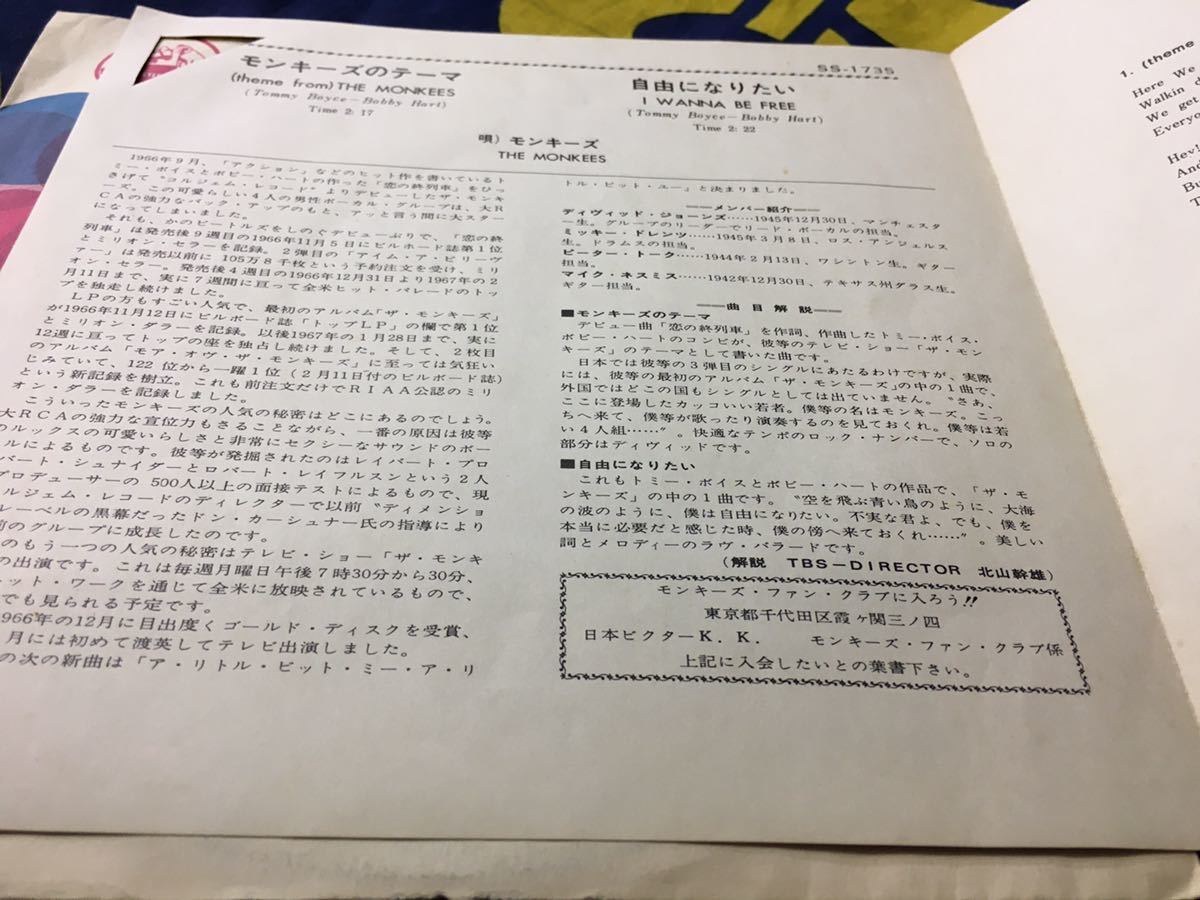 SS-1735
モンキーズのテーマ
(theme from) THE MONKEES
(Tommy Boyce－Bobby Hart)
Time 2: 17
自由になりたい
I WANNA BE FREE
(Tommy Boyce－Bobby Hart)
Time 2: 22
唄) モンキーズ
THE MONKEES
1966年9月、「アクション」などのヒット作を書いているト
ミー・ボイスとボビー・ハートの作った「恋の終列車」をひっ
さげて〝コルジェム・レコード〟よりデビューしたザ・モンキ
ーズ。この可愛らしい4人の男性ボーカル・グループは、大R
CAの強力なバック・アップのもと、アッと言う間に大スター
になってしまいました。
それも、かのビートルズをしのぐデビューぶりで、「恋の終
列車」は発売後9週目の1966年11月5日にビルボード誌第1位
とミリオン・セラーを記録。2弾目の「アイム・ア・ビリーヴ
ァー」は発売以前に 105万8千枚という予約注文を受け、ミリ
オン・セラー。発売後4週目の1966年12月31日より1967年の2
月11日まで、実に7週間に亘って全米ヒット・パレードのトッ
プを独走し続けました。
LPの方もすごい人気で、最初のアルバム「ザ・モンキーズ」
が1966年11月12日にビルボード誌「トップLP」の欄で第1位
とミリオン・ダラーを記録。以後1967年の1月28日まで、実に
12週に亘ってトップの座を独占し続けました。そして、2枚目
のアルバム「モア・オヴ・ザ・モンキーズ」に至っては気狂い
じみていて、122 位から一躍1位（2月11日付のビルボード誌）
という新記録を樹立。これも前注文だけでRIAA公認のミリ
オン・ダラーを記録しました。
こういったモンキーズの人気の秘密はどこにあるのでしょう。
大RCAの強力な宣伝力もさることながら、一番の原因は彼等
のルックスの可愛いらしさと非常にセクシーなサウンドのボー
ルによるものです。彼等が発掘されたのはレイバート・プロ
バート・シュナイダーとロバート・レイフルスンという2人
プロデューサーの 500人以上の面接テストによるもので、現
ルジェム・レコードのディレクターで以前〝ディメンショ
レーベルの黒幕だったドン・カーシュナー氏の指導により
前のグループに成長したのです。
のもう一つの人気の秘密はテレビ・ショー「ザ・モンキ
の出演です。これは毎週月曜日午後7時30分から30分、
ネット・ワークを通じて全米に放映されているもので、
でも見られる予定です。
1966年の12月に目出度くゴールド・ディスクを受賞、
月には初めて渡英してテレビ出演しました。
の次の新曲は「ア・リトル・ビット・ミー・ア・リ
トル・ビット・ユー」と決まりました。
──メンバー紹介──
ディヴィッド・ジョーンズ……1945年12月30日、マンチェスタ
ー生。グループのリーダーでリード・ボーカルの担当。
ミッキー・ドレンツ……1945年3月8日、ロス・アンジェルス
生。ドラムスの担当。
ピーター・トーク……1944年2月13日、ワシントン生。ギター
担当。
マイク・ネスミス……1942年12月30日、テキサス州ダラス生。
ギター担当。
──曲目解説──
■モンキーズのテーマ
デビュー曲「恋の終列車」を作詞、作曲したトミー・ボイス、
ボビー・ハートのコンビが、彼等のテレビ・ショー「ザ・モン
キーズ」のテーマとして書いた曲です。
日本では彼等の3弾目のシングルにあたるわけですが、実際
には、彼等の最初のアルバム「ザ・モンキーズ」の中の1曲で、
外国ではどこの国もシングルとしては出ていません。〝さあ、
ここに登場したカッコいい若者。僕等の名はモンキーズ。こっ
ちへ来て、僕等が歌ったり演奏するのを見ておくれ。僕等は若
い4人組……〟。快適なテンポのロック・ナンバーで、ソロの
部分はディヴィッドです。
■自由になりたい
これもトミー・ボイスとボビー・ハートの作品で、「ザ・モ
ンキーズ」の中の1曲です。〝空を飛ぶ青い鳥のように、大海
の波のように、僕は自由になりたい。不実な君よ、でも、僕を
本当に必要だと感じた時、僕の傍へ来ておくれ……〟。美しい
詞とメロディーのラヴ・バラードです。
(解説 TBS－DIRECTOR 北山幹雄)
モンキーズ・ファン・クラブに入ろう!!
東京都千代田区霞ヶ関三ノ四
日本ビクターK. K. モンキーズ・ファン・クラブ係
上記に入会したいとの葉書下さい。
1. (theme
Here We
Walkin d
We get
Everyo
Hey!
And
Bu
T